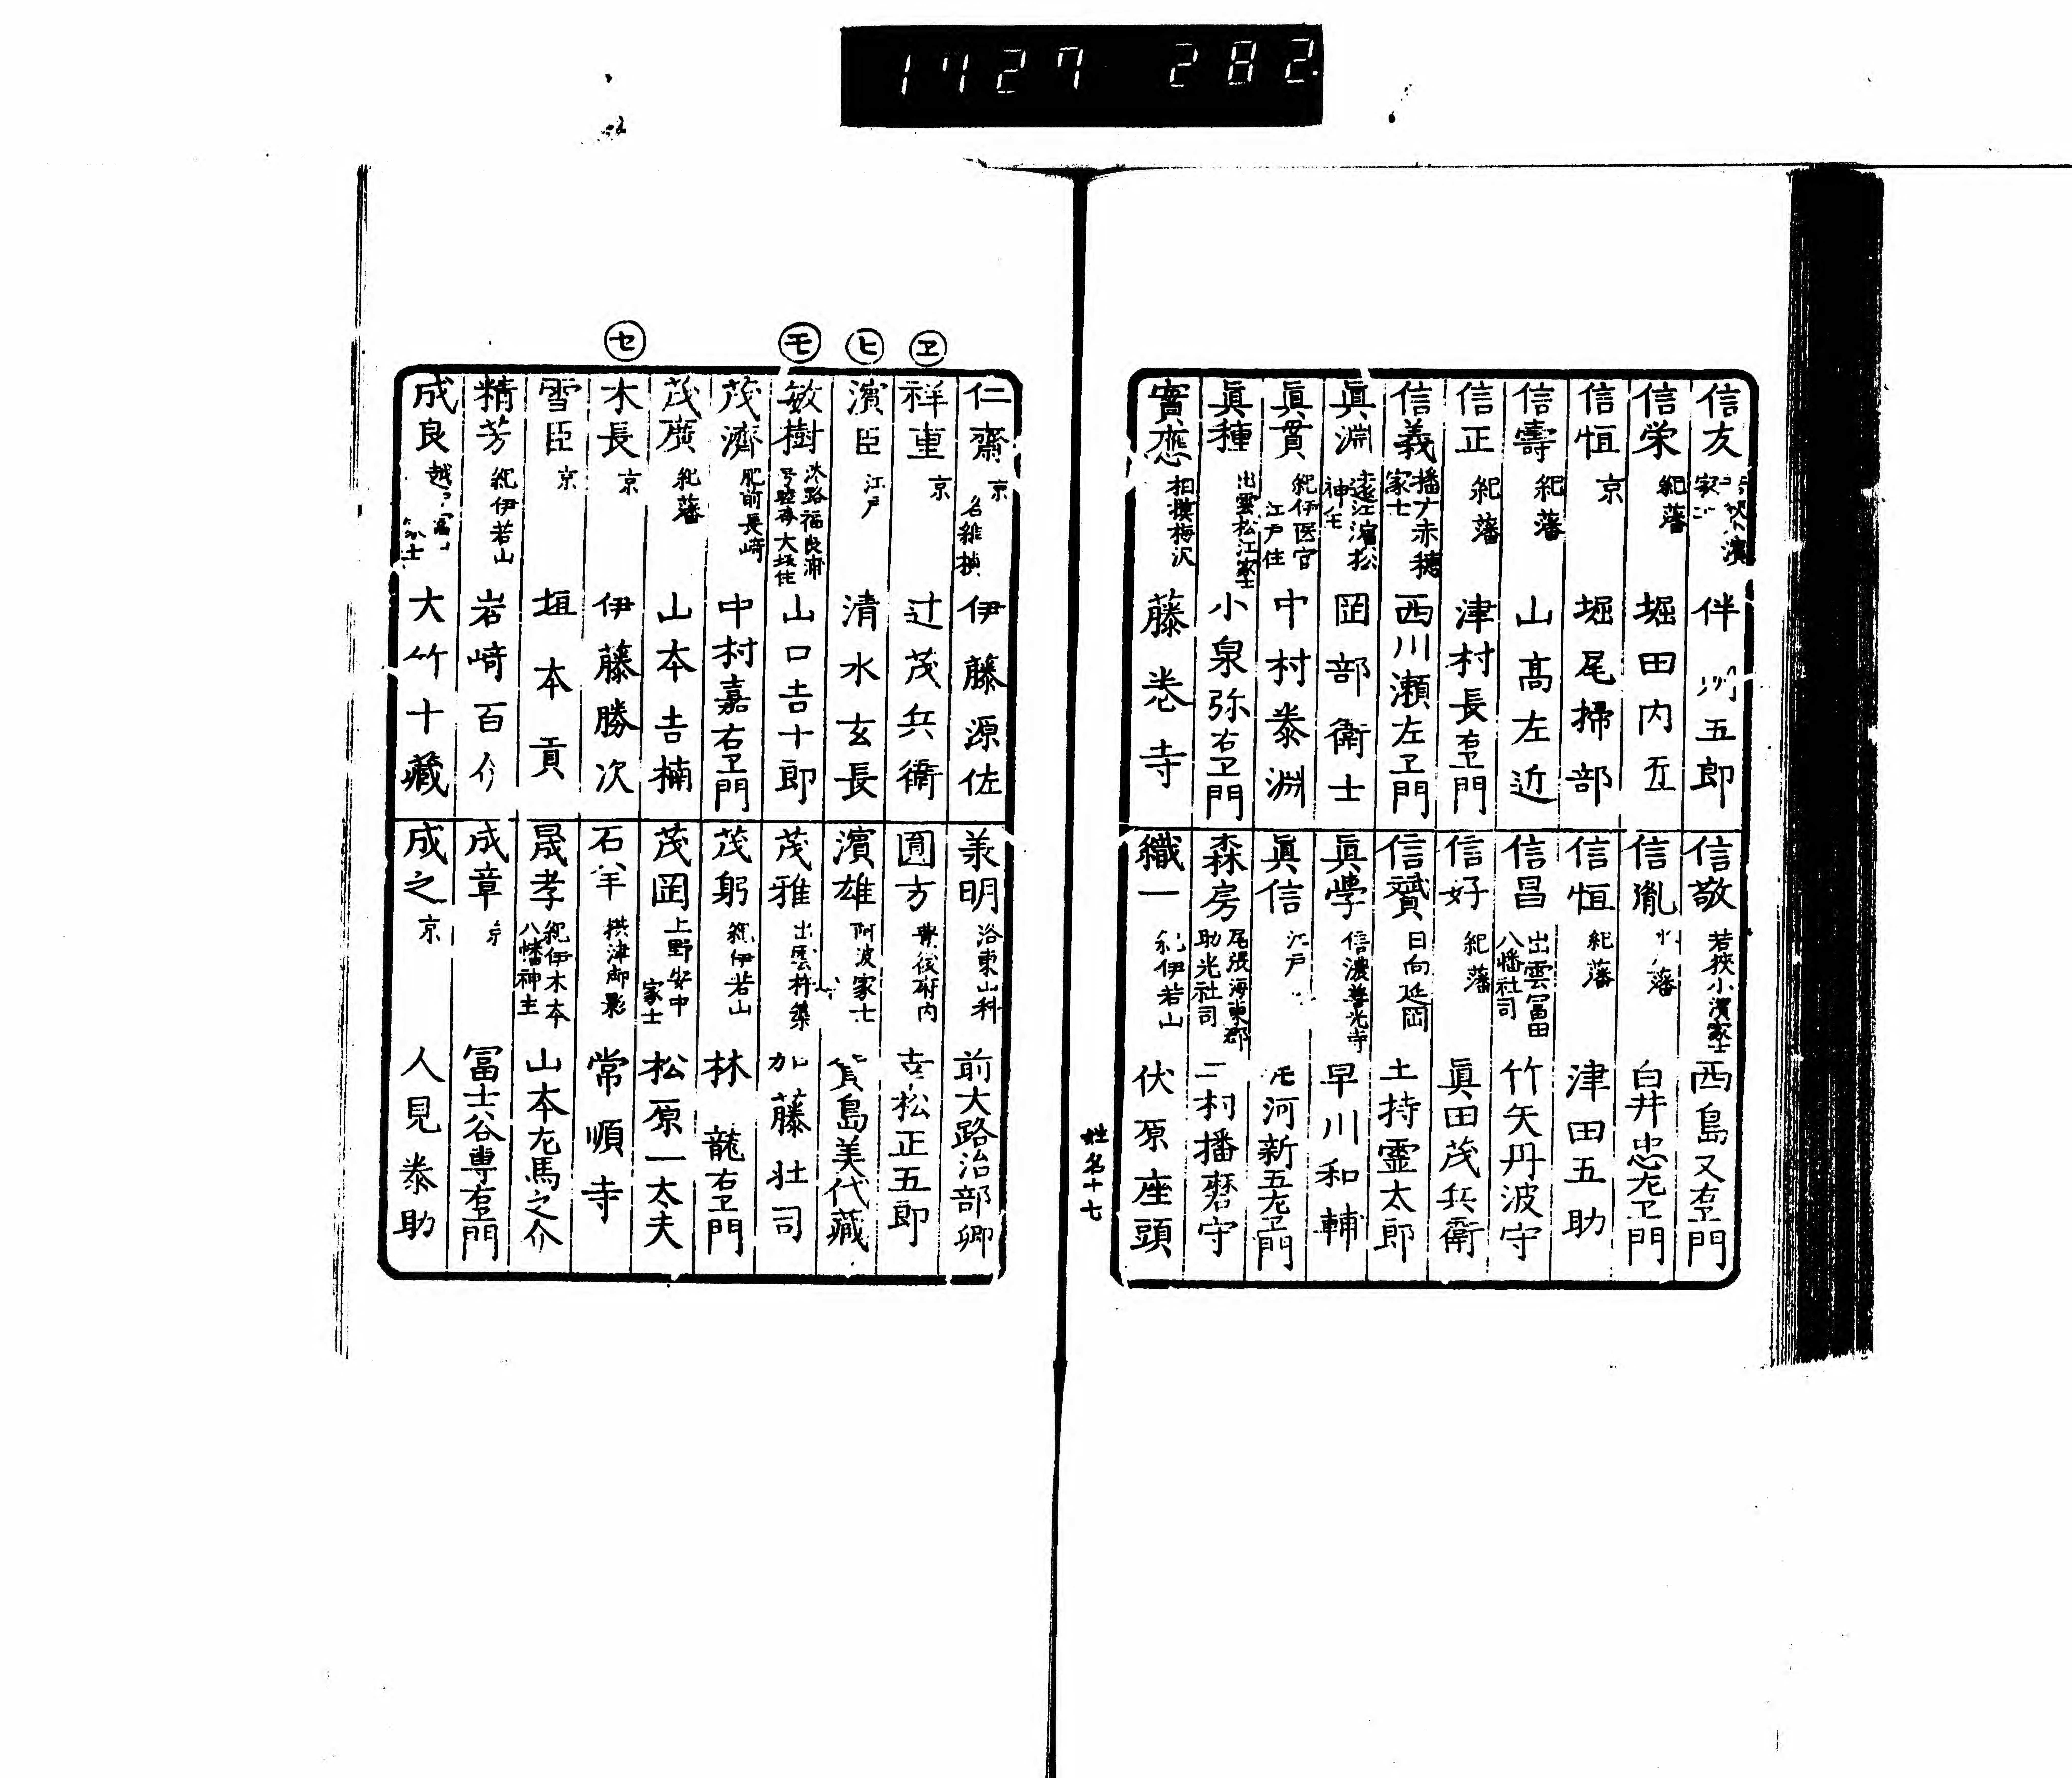 1727 282
信友 伴 五郎
信栄 紀藩 堀田内五
信恒 京 堀尾掃部
信壽 紀藩 山髙左近
信正 紀藩 津村長右卫門
信義 播广赤穂家士 西川瀬左卫門
眞淵 遠江濱松神主 岡部衛士
眞貫 紀伊医官江戸住 中村泰淵
眞種 出雲松江家士 小泉弥右卫門
實應 相摸梅沢 藤巻寺
信敬 若狹小濱家士 西島又右卫門
信胤 藩 白井忠左卫門
信恒 紀藩 津田五助
信昌 出雲冨田八幡社司 竹矢丹波守
信好 紀藩 眞田茂兵衛
信贇 日向延岡 土持霊太郎
眞學 信濃善光寺 早川和輔
眞信 江戸 河新五左卫門
森房 尾張海東郡助光社司 二村播磨守
織一 紀伊若山 伏原座頭
姓名十七
ヱ
ヒ
モ
セ
仁齋 京 名維楨 伊藤源佐
祥重 京 辻茂兵衛
濱臣 江戸 清水玄長
敏樹 淡路福良浦号睦斎大坂住 山口吉十郎
茂濟 肥前長﨑 中村嘉右卫門
茂廣 紀藩 山本吉楠
木長 京 伊藤勝次
雪臣 京 垣本貢
精芳 紀伊若山 岩﨑百介
成良 越 士 大竹十藏
美明 洛東山科 前大路治部卿
圓方 豊後府内 幸松正五郎
濱雄 阿波家士 賀島美代藏
茂雅 出雲杵築 加藤壮司
茂躬 紀伊若山 林龍右卫門
茂岡 上野安中家士 松原一太夫
石羊 摂津御影 常順寺
晟孝 紀伊木本八幡神主 山本左馬之介
成章 京 冨士谷専右卫門
成之 京 人見泰助